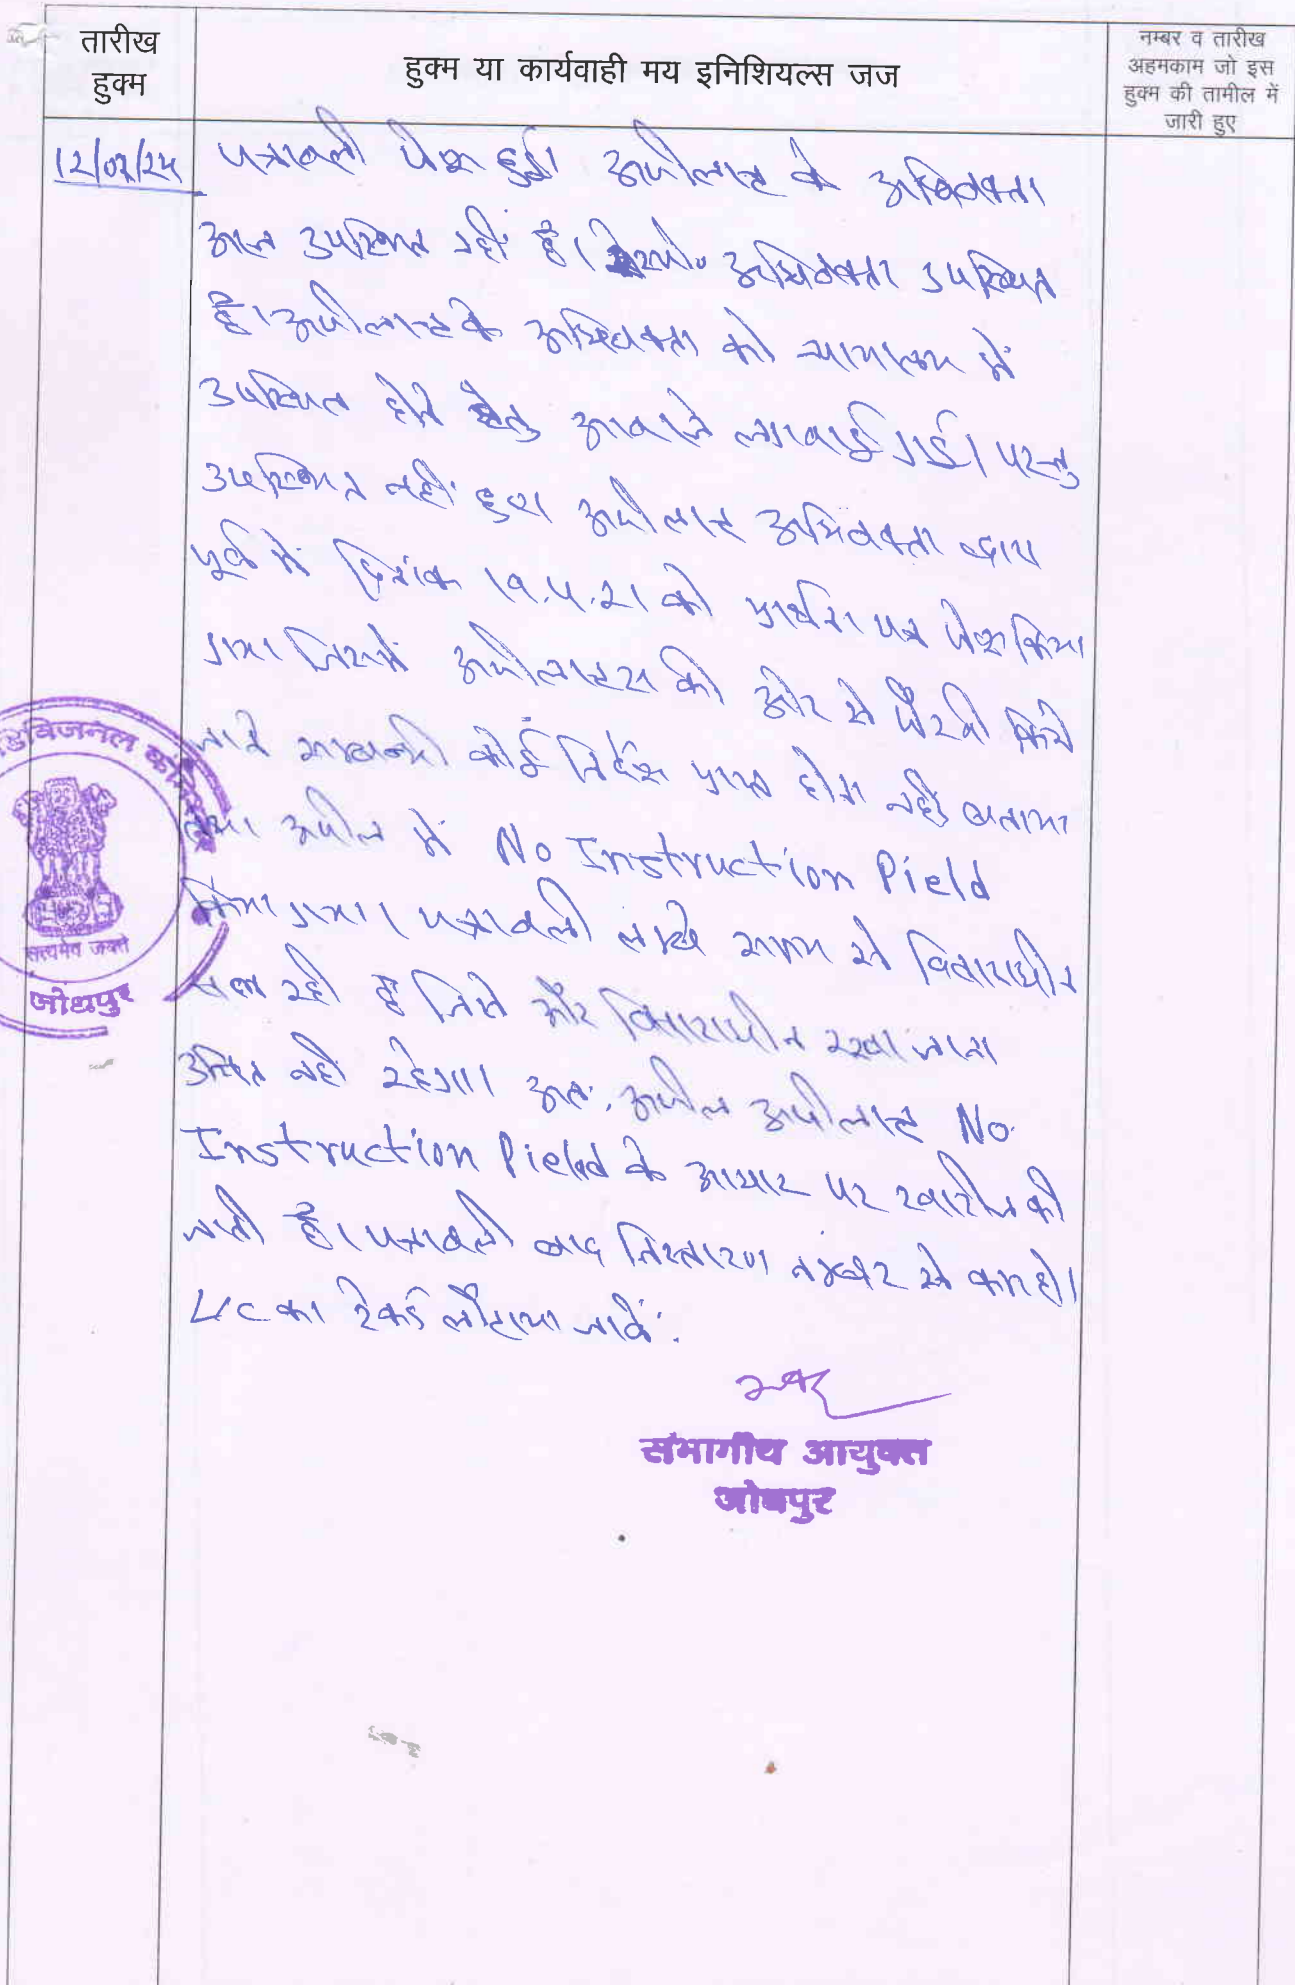 तारीख
हुक्म
हुक्म या कार्यवाही मय इनिशियल्स जज
नम्बर व तारीख
अहमकाम जो इस
हुक्म की तामील में
जारी हुए
पत्रावली पेश हुई। अपीलान्ट के अधिवक्ता
आज उपस्थित नहीं है। रेस्पो० अधिवक्ता उपस्थित
है। अपीलान्ट के अधिवक्ता को न्यायालय में
उपस्थित होने हेतु आवाजे लगवाई गई। परन्तु
उपस्थित नहीं हुए। अपीलान्ट अधिवक्ता द्वारा
पूर्व में दिनांक 19.4.21 को प्रार्थना पत्र पेश किया
गया जिसमें अपीलान्टस की ओर से पैरवी किये
जाने सम्बन्धी कोई निर्देश प्राप्त होना नहीं बताया
तथा अपील में No Instruction Pield
किया गया। पत्रावली लम्बे समय से विचाराधीन
चल रही है जिसे और विचाराधीन रखा जाना
उचित नहीं रहेगा। अतः अपील अपीलान्ट No
Instruction Pield के आधार पर खारीज की
जाती है। पत्रावली बाद निस्तारण नम्बर से कम हो।
LC का रेकर्ड लौटाया जावें.
संभागीय आयुक्त
जोधपुर
डिविजनल कमिश्नर
सत्यमेव जयते
जोधपुर